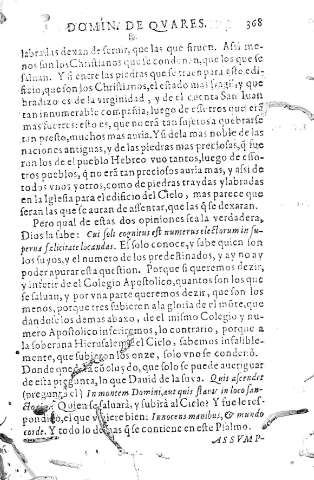 DOMIN. DE QVARES. 368
labradas dexan de seruir, que las que siruen. Assi me-
nos son los Christianos que se condenan, que los que se
saluan. Y si entre las piedras que se traen para este edi-
ficio, que son los Christianos, el estado mas fragil, y que-
bradizo es de la virginidad, y de el cuenta San Iuan
tan innumerable compañia, luego de essotros que erã
mas fuertes: esto es, que no erã tan sujetos a quebrarse
tan presto, muchos mas auria. Y si de la mas noble de las
naciones antiguas, y de las piedras mas preciosas, q̃ fue
ron los de el pueblo Hebreo vuo tantos, luego de esso-
tros pueblos, q̃ no erã tan preciosos auria mas, y assi de
todos vnos y otros, como de piedras traydas y labradas
en la Iglesia para el edificio del Cielo, mas parece que
seran las que se auran de assentar, que las q̃ se dexaran.
Pero qual de estas dos opiniones sea la verdadera,
Dios la sabe: Cui soli cognitus est numerus electorum in su-
perna fælicitate locandus. El solo conoce, y sabe quien son
los suyos, y el numero de los predestinados, y ay no ay
poder apurar esta question. Porque si queremos dezir,
y inferir de el Colegio Apostolico, quantos son los que
se saluan, y por vna parte queremos dezir, que son los
menos, porque tres subieren a la gloria de el mõte, que-
dandose los demas abaxo, de el mismo Colegio y nu-
mero Apostolico inferiremos, lo contrario, porque a
la soberana Hierusalem de el Cielo, sabemos infalible-
mente, que subieron los onze, solo vno se condenò.
Donde que da concluydo, que solo se puede aueriguar
de esta pregunta, lo que Dauid de saua. Quis ascendet
(pregunta el) In montem Domini, aut quis stauit in loco san-
cto eius? Quien se saluarà, y subirà al Cielo? Y fuele res-
pondido, el que viuiere bien: Innocens manibus, & mundo
corde. Y todo lo demas que se contiene en este Psalmo.
ASSVMP-